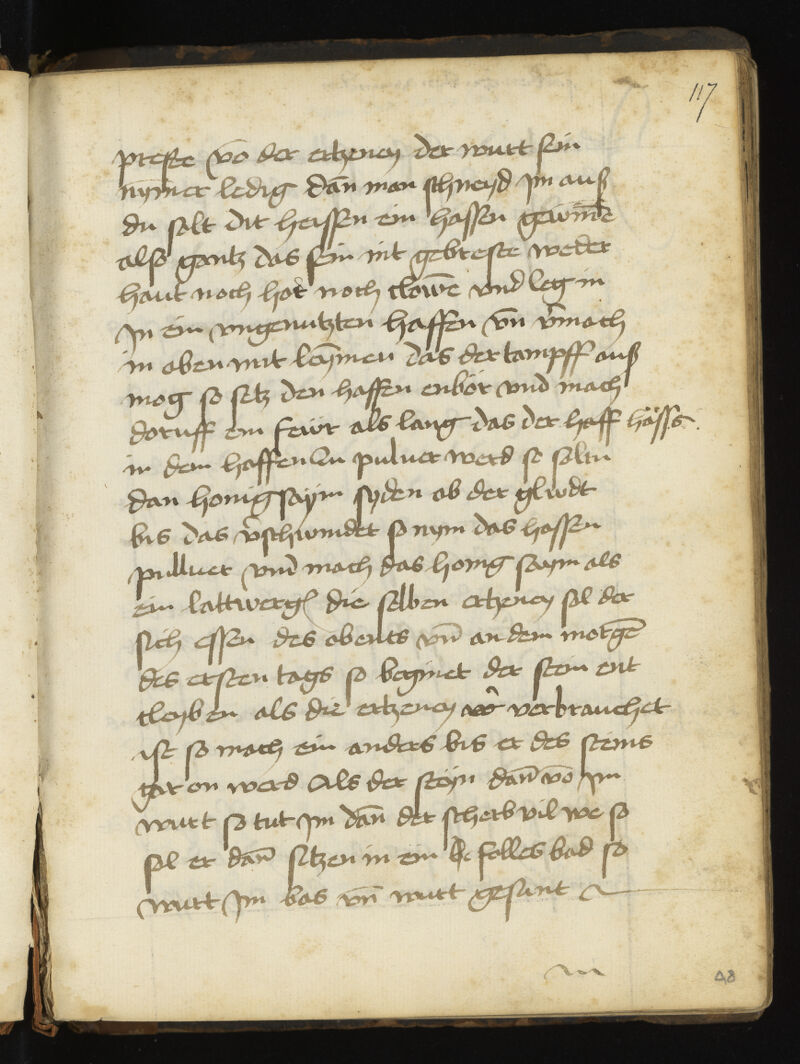 117
preste vō der ertzeney der wurt sein
nymer ledig dān man schneyd im auß
du solt dir heissen ein hassen gewinnē
also gantz das sein nit gebreste weder
haut noch hor noch clowē vnd leg in
In ein vngenutzten haffen vn̄ v̄mach
in oben mit leymen das der tampff auß
mog so setz den haffen enbör vnd mach
doruff ein feür als lang das der haß
in dem haffen zu puluer werd so soltu
dan honigsaym syden ob der gludt
bis das v̄schwindet so nym das hassen
pulluer vnd mach das honig saym als
ein lattwergē die selben ertzeney sol der
sich essen des abents vn̄ an dem morgē
des ersten tags so beginet der stein ent
cleyben als die ertzeney verbrauchet
ist so mach ein anders bis er des steins
gar on werd Als der steyn dan̄ vō im
wurt so tut im dan̄ der scherb vil we so
sol er dan̄ sitzen in ein volles bad so
wurt im bas vn̄ wurt gesunt
48